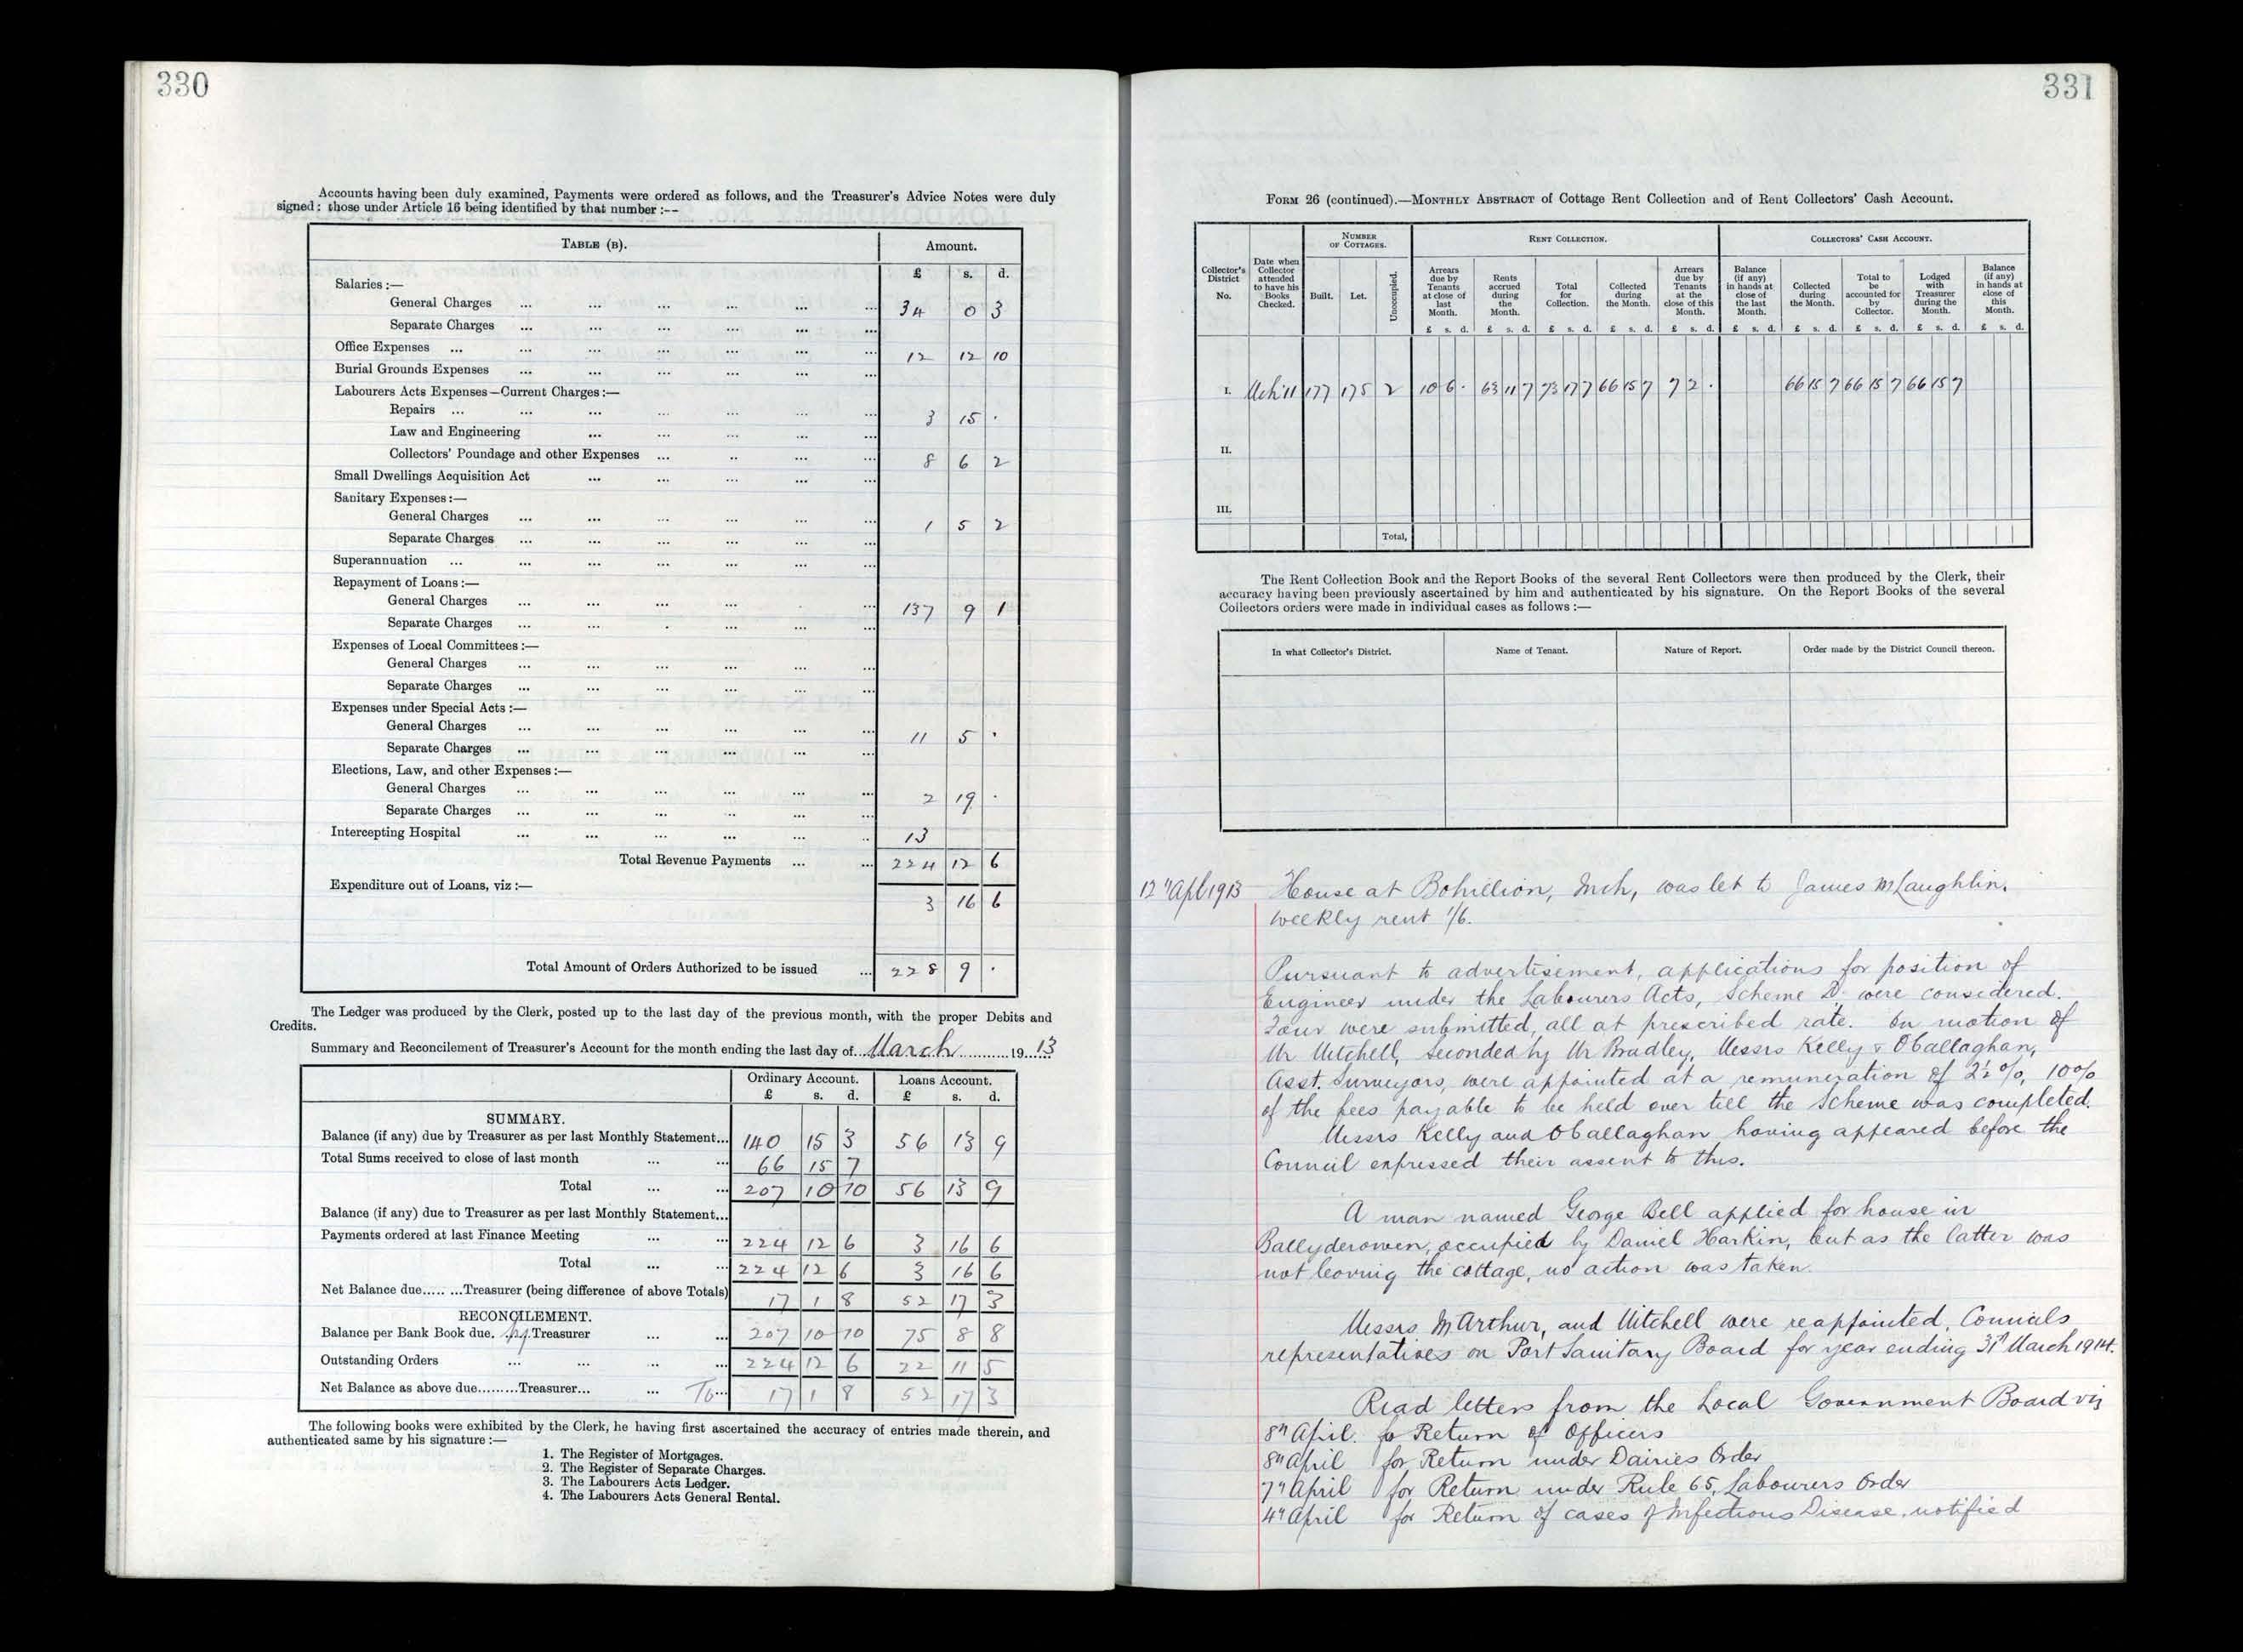 330
Accounts having been duly examined, Payments were ordered as follows, and the Treasurer's Advice Notes were duly
signed: those under Article 16 being identified by that number :--
TABLE (B). Amount.
£ s. d.
Salaries :—
General Charges ... ... ... ... ... ... 34 0 3
Separate Charges ... ... ... ... ... ...
Office Expenses ... ... ... ... ... ... 12 12 10
Burial Grounds Expenses ... ... ... ... ... ...
Labourers Acts Expenses—Current Charges :—
Repairs ... ... ... ... ... ... 3 15 .
Law and Engineering ... ... ... ... ...
Collectors' Poundage and other Expenses ... .. ... ... 8 6 2
Small Dwellings Acquisition Act ... ... ... ... ...
Sanitary Expenses :—
General Charges ... ... ... ... ... ... 1 5 2
Separate Charges ... ... ... ... ... ...
Superannuation ... ... ... ... ... ...
Repayment of Loans :—
General Charges ... ... ... ... . ... 137 9 1
Separate Charges ... ... . ... ... ...
Expenses of Local Committees :—
General Charges ... ... ... ... ... ...
Separate Charges ... ... ... ... ... ...
Expenses under Special Acts :—
General Charges ... ... ... ... ... ... 11 5 .
Separate Charges ... ... ... ... ... ...
Elections, Law, and other Expenses :—
General Charges ... ... ... ... ... ... 2 19 .
Separate Charges ... ... ... ... ... ...
Intercepting Hospital ... ... ... ... ... .. 13
Total Revenue Payments ... ... 224 12 6
Expenditure out of Loans, viz :—
3 16 6
Total Amount of Orders Authorized to be issued ... 228 9 .
The Ledger was produced by the Clerk, posted up to the last day of the previous month, with the proper Debits and
Credits.
Summary and Reconcilement of Treasurer's Account for the month ending the last day of...March............19...13
Ordinary Account. Loans Account.
£ s. d. £ s. d.
SUMMARY.
Balance (if any) due by Treasurer as per last Monthly Statement... 140 15 3 56 13 9
Total Sums received to close of last month ... ... 66 15 7
Total ... ... 207 10 10 56 13 9
Balance (if any) due to Treasurer as per last Monthly Statement...
Payments ordered at last Finance Meeting ... ... 224 12 6 3 16 6
Total ... ... 224 12 6 3 16 6
Net Balance due..... ...Treasurer (being difference of above Totals) 17 1 8 52 17 3
RECONCILEMENT.
Balance per Bank Book due. by Treasurer ... ... 207 10 10 75 8 8
Outstanding Orders ... ... ... ... 224 12 6 22 11 5
Net Balance as above due.........Treasurer... ... To... 17 1 8 52 17 3
The following books were exhibited by the Clerk, he having first ascertained the accuracy of entries made therein, and
authenticated same by his signature :—
1. The Register of Mortgages.
2. The Register of Separate Charges.
3. The Labourers Acts Ledger.
4. The Labourers Acts General Rental.
331
FORM 26 (continued).—MONTHLY ABSTRACT of Cottage Rent Collection and of Rent Collectors' Cash Account.
Collector's District No.
Date when Collector attended to have his Books Checked.
NUMBER OF COTTAGES.
Built. Let. Unoccupied.
RENT COLLECTION.
Arrears due by Tenants at close of last Month. £ s. d.
Rents accrued during the Month. £ s. d.
Total for Collection. £ s. d.
Collected during the Month. £ s. d.
Arrears due by Tenants at the close of this Month. £ s. d.
COLLECTORS' CASH ACCOUNT.
Balance (if any) in hands at close of the last Month. £ s. d.
Collected during the Month. £ s. d.
Total to be accounted for by Collector. £ s. d.
Lodged with Treasurer during the Month. £ s. d.
Balance (if any) in hands at close of this Month. £ s. d.
I. Mch 11 177 175 2 10 6 . 63 11 7 73 17 7 66 15 7 7 2 . 66 15 7 66 15 7 66 15 7
II.
III.
Total,
The Rent Collection Book and the Report Books of the several Rent Collectors were then produced by the Clerk, their
accuracy having been previously ascertained by him and authenticated by his signature. On the Report Books of the several
Collectors orders were made in individual cases as follows :—
In what Collector's District. Name of Tenant. Nature of Report. Order made by the District Council thereon.
12th Apl 1913 House at Bohillion, Inch, was let to James McLaughlin.
weekly rent 1/6.
Pursuant to advertisement, applications for position of
Engineer under the Labourers Acts, Scheme D were considered.
Four were submitted, all at prescribed rate. On motion of
Mr Mitchell, Seconded by Mr Bradley, Messrs Kelly & O'Callaghan,
Asst. Surveyors, were appointed at a remuneration of 2½%, 10%
of the fees payable to be held over till the Scheme was completed.
Messrs Kelly and O'Callaghan having appeared before the
Council expressed their assent to this.
A man named George Bell applied for house in
Ballyderowen, occupied by Daniel Harkin, but as the latter was
not leaving the cottage, no action was taken.
Messrs McArthur, and Mitchell were reappointed, Councils
representatives on Port Sanitary Board for year ending 31st March 1914.
Read letters from the Local Government Board viz
8th April. for Return of Officers
8th April for Return under Dairies Order
7th April for Return under Rule 65, Labourers Order
4th April for Return of cases of Infectious Disease, notified